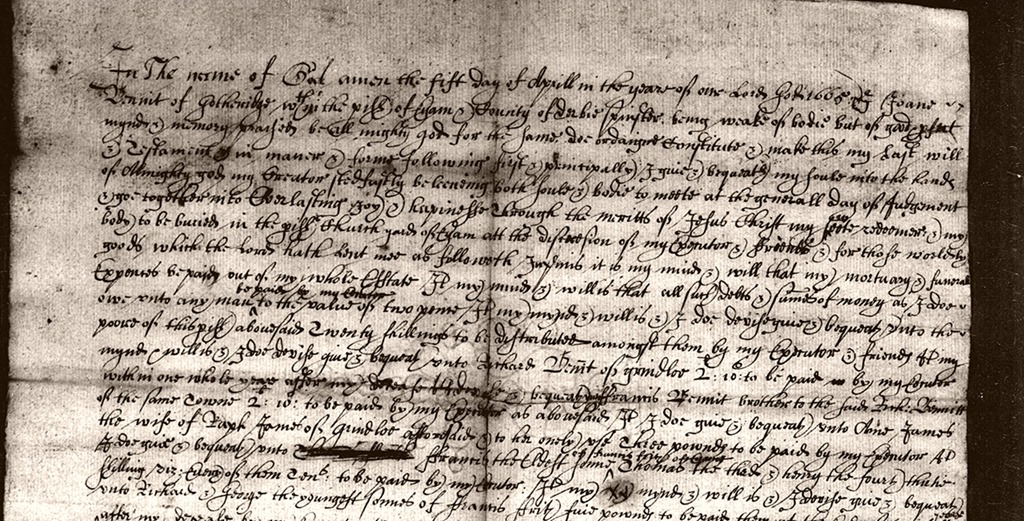 In The name of God amen the fift day of Aprill in the yeare of our Lord God: 1665 I Joane
Bennit of Gotheridge wthin the pish of Eyam & County of Derbie spinster being weake of bodie but of good pfect
mynd & memory praised be all mighty god for the same doe ordangne Constitute & make this my Last will
& Testament in maner & forme following first & principally I giue & bequeath my soule into the hands
of Almighty god my Creator stedfastly beleeuing both soule & bodie to meete at the generall day of Judgement
& goe together into Everlasting Joy & hapinesse Through the meritts of Jesus Christ my redeemer & my
body to be buried in the pish Church yard of Eyam att the discresion of my Executor & friends & for those worldly
goods which the Lord hath lent mee as followeth Inprimis it is my mind & will that my mortuary & funerall
Expences be paid out of my whole Estate It my mind & will is that all such debts & sumes of money as I doe
be paid by my Executor
owe vnto any man to the value of two pence It my mynd & will is & I doe devise giue & bequeat vnto the
poore of this pish abouesaid Twenty shillings to be distributed amongst them by my Executor & friends It my
mynd & will is & I doe devise giue & bequeat vnto Richard Benit of grindloe 2: 10: to be paid by my Executor
within one whole yeare after my decease & bequeat Francis Bennit brother to the said Rich: Bennitt
of the same Towne 2: 10: to be paid by my Executor as abouesaid It I doe giue & bequeat vnto Anne James
the wife of Raph James of Grindloe afforesaid & to her onely vse Three pounds to be paid by my Executor It
I doe giue & bequeat vnto Francis the Eldest sonne Thomas the third & henry the fourth
shilling viz: Every of them Ten: to be paid by my Executor: It my mynd & will is & I devise giue & bequeat
vnto Richard & George the youngest sonnes of Francis fiue pounds to be paid
after my decease